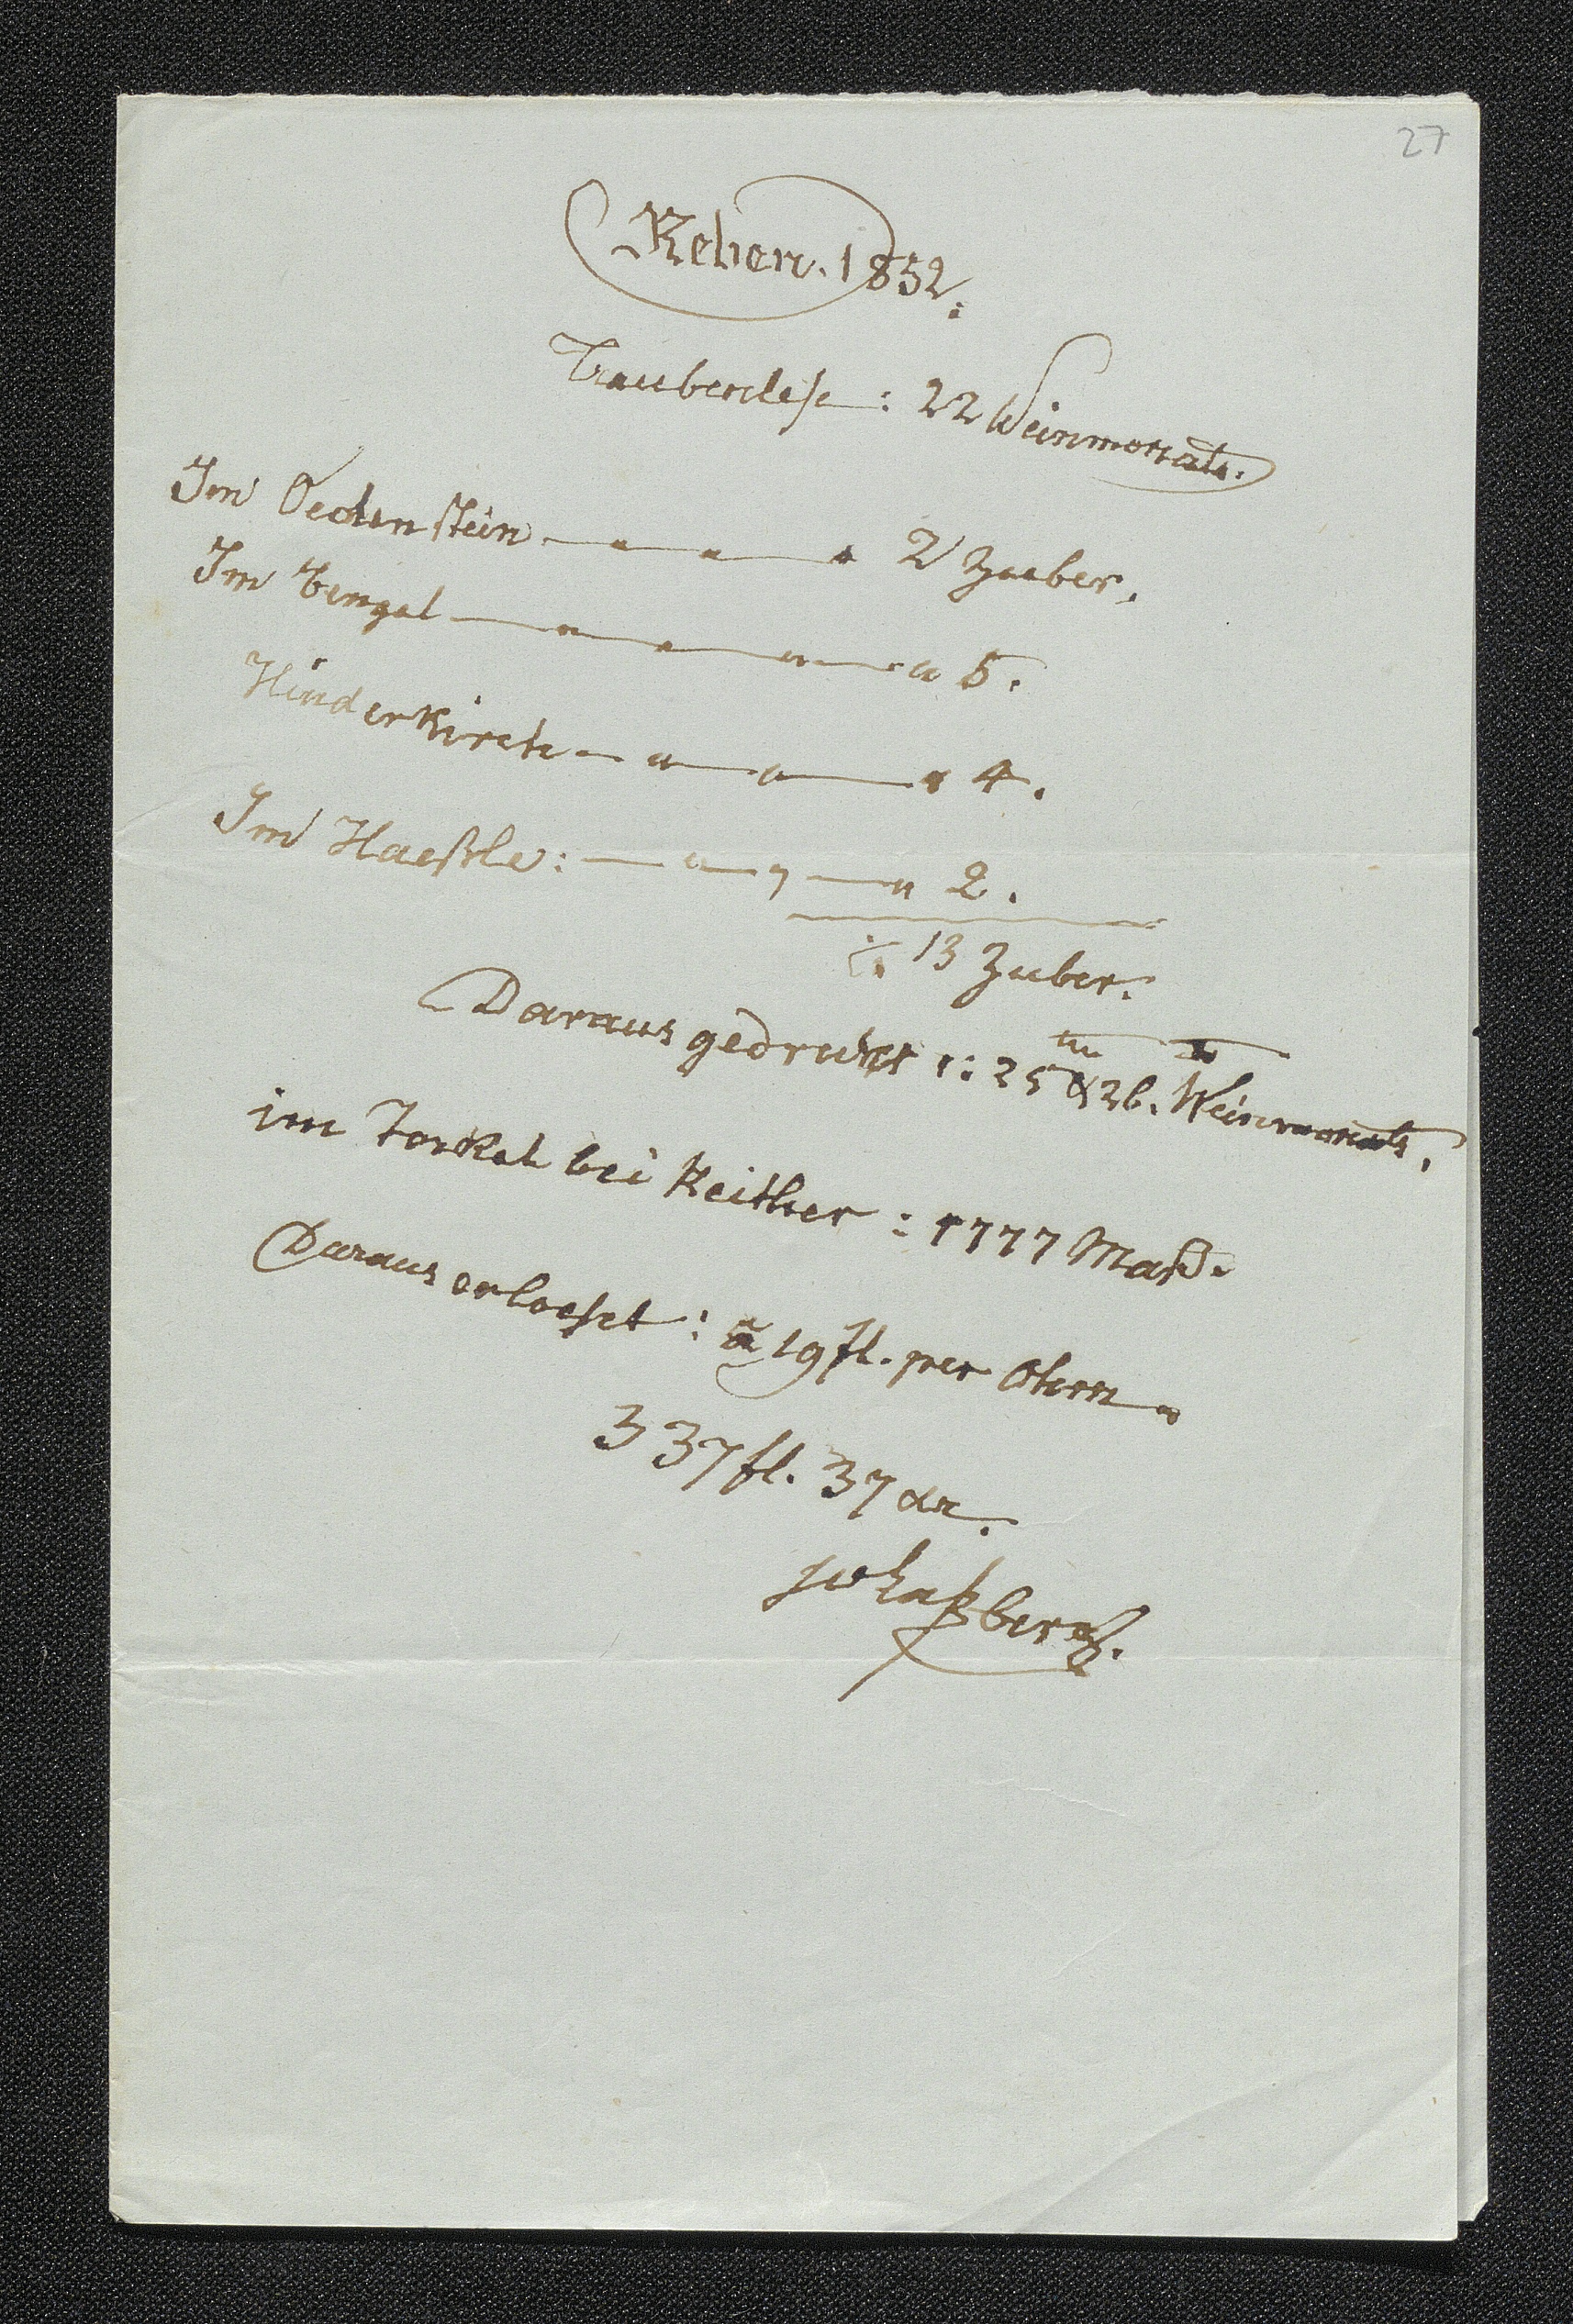 27
Reben. 1852.
Traubenlese: 22 Weinmonats.
Im Oedenstein — " — " — " 2 Zuber.
Im Bengel — " — " — " — " 5.
Hinderkirch — " — " — " 4.
Im Haeßle: — " — " — " 2.
13 Zuber.
Daraus gedrukt: 25 & 26. Weinmonats.
im Torkel bei Reither: 1777 Maß.
Daraus erloeset: à 19 fl. per Ohm
337 fl. 37 xr.
JvLaßberg.